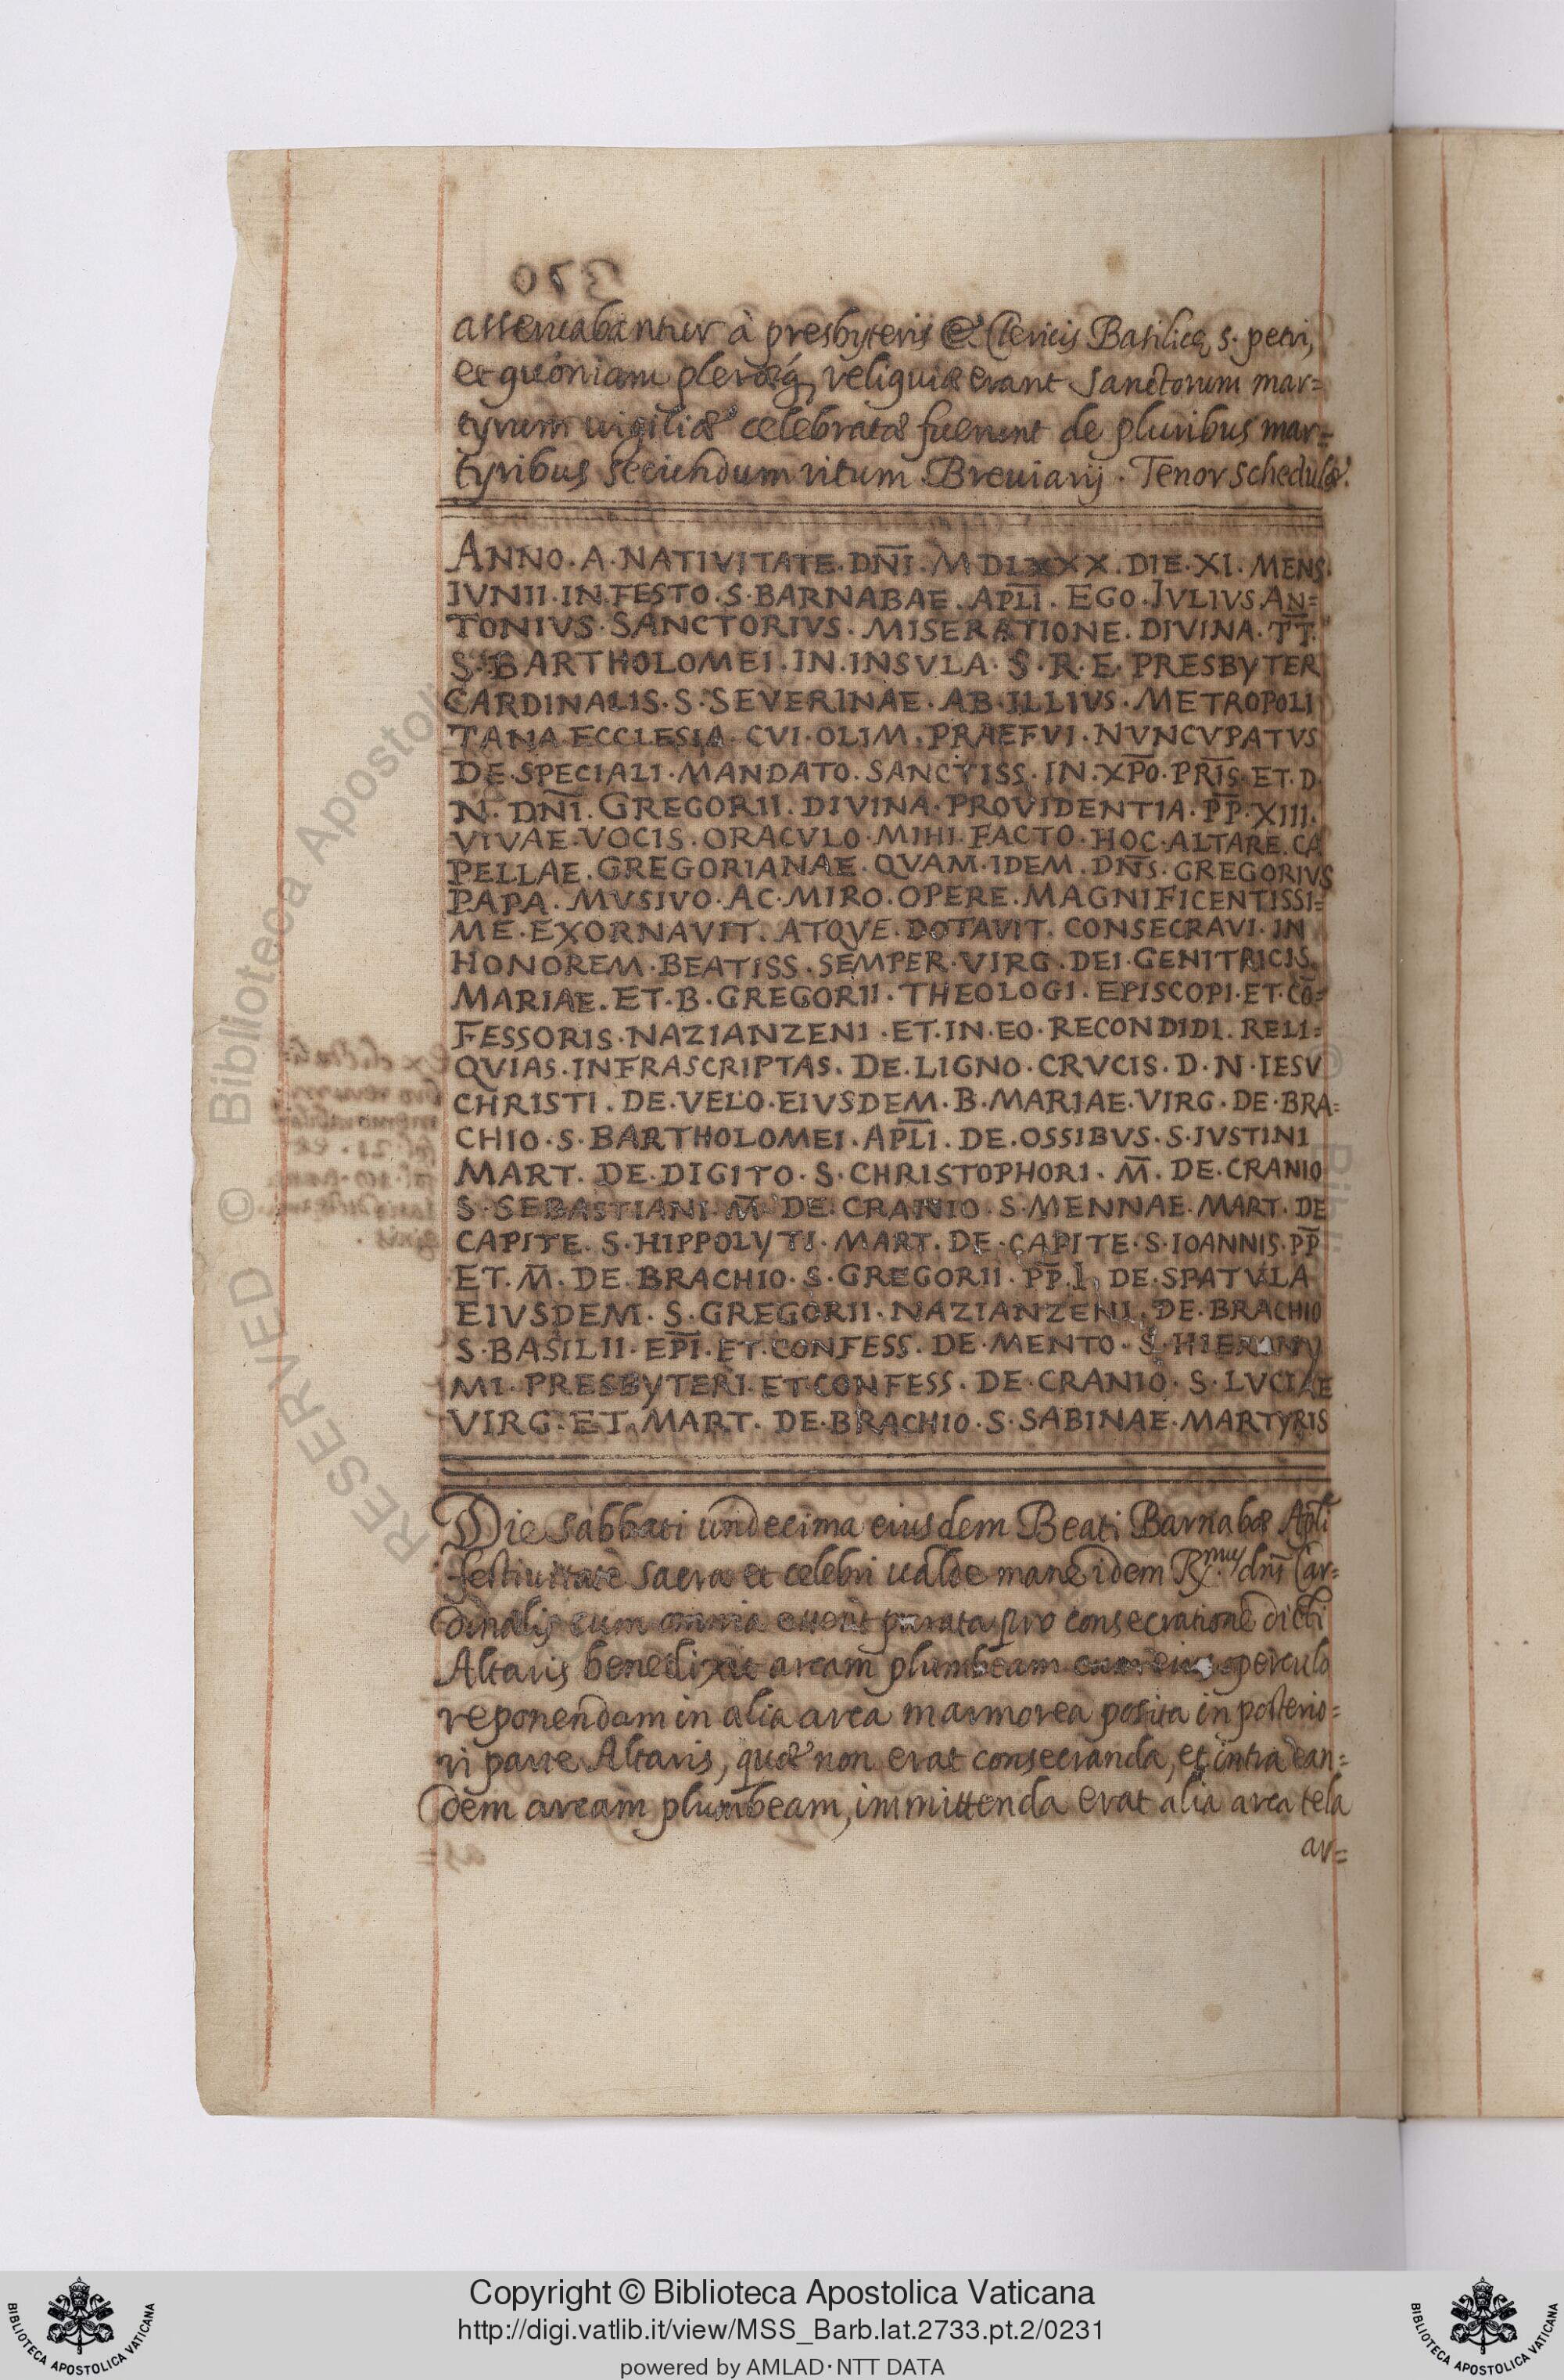 asseruabantur à presbyteris & Clericis Basilicę s. petri,
et quoniam pleræq, reliquiæ erant Sanctorum mar=
tyrum uigiliæ celebratæ fuerunt de pluribus mar=
tyribus secundum ritum Breuiarij. Tenor schedulæ.
ANNO. A. NATIVITATE. DN̅I. MDLXXX. DIE. XI. MENS.
IVNII. IN. FESTO. S. BARNABAE. APL̅I. EGO. IVLIVS. AN=
TONIVS. SANCTORIVS. MISERATIONE. DIVINA. TT̅.
S. BARTHOLOMEI. IN. INSVLA. S. R. E. PRESBYTER
CARDINALIS. S. SEVERINAE. AB. ILLIVS. METROPOLI
TANA ECCLESIA. CVI. OLIM. PRAEFVI. NVNCVPATVS
DE. SPECIALI. MANDATO. SANCTISS. IN. XP̅O. PRI̅S. ET. D.
N. DN̅I. GREGORII. DIVINA. PROVIDENTIA. PP̅. XIII.
VIVAE. VOCIS. ORACVLO. MIHI. FACTO. HOC. ALTARE. CA
PELLAE. GREGORIANAE. QVAM. IDEM. DN̅S. GREGORIVS
PAPA. MVSIVO. AC. MIRO. OPERE. MAGNIFICENTISSI=
ME. EXORNAVIT. ATQVE. DOTAVIT. CONSECRAVI. IN
HONOREM. BEATISS. SEMPER. VIRG. DEI. GENITRICIS.
MARIAE. ET. B. GREGORII. THEOLOGI. EPISCOPI. ET. CO̅=
FESSORIS. NAZIANZENI. ET. IN. EO. RECONDIDI. RELI=
QVIAS. INFRASCRIPTAS. DE. LIGNO. CRVCIS. D. N. IESV
CHRISTI. DE. VELO. EIVSDEM. B. MARIAE. VIRG. DE. BRA=
CHIO. S. BARTHOLOMEI. APL̅I. DE. OSSIBVS. S. IVSTINI
MART. DE. DIGITO. S. CHRISTOPHORI. M̅. DE. CRANIO
S. SEBASTIANI. M̅ DE. CRANIO. S. MENNAE. MART. DE
CAPITE. S. HIPPOLYTI. MART. DE. CAPITE. S. IOANNIS. PP̅
ET. M̅. DE. BRACHIO. S. GREGORII. PP̅. I. DE. SPATVLA
EIVSDEM. S. GREGORII. NAZIANZENI. DE. BRACHIO
S. BASILII. EPI̅. ET. CONFESS. DE. MENTO. S. HIERONY
MI. PRESBYTERI. ET. CONFESS. DE. CRANIO. S. LVCIAE
VIRG. ET. MART. DE. BRACHIO. S. SABINAE. MARTYRIS
Die sabbati undecima eiusdem Beati Barnabæ Apl̅i
festiuitate sacra et celebri ualde mane idem R.mus dn̅s Car=
dinalis cum omnia parata pro consecratione dicti
Altaris benedixit arcam plumbeam cum eius operculo
reponendam in alia arca marmorea posita in posterio=
ri parte Altaris, quæ non erat consecranda, et intra ean=
dem arcam plumbeam, immittenda erat alia arca tela
ar=
RESERVED © Biblioteca Apostoli
Copyright © Biblioteca Apostolica Vaticana
http://digi.vatlib.it/view/MSS_Barb.lat.2733.pt.2/0231
powered by AMLAD·NTT DATA
BIBLIOTECA APOSTOLICA VATICANA
BIBLIOTECA APOSTOLICA VATICANA